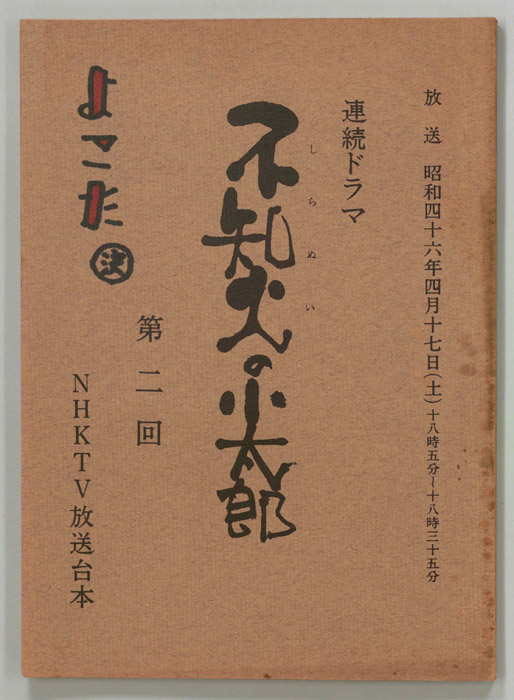 放送 昭和四十六年四月十七日(土)十八時五分~十八時三十五分
連続ドラマ
しらぬい
不知火の小太郎
第二回
よこた
決
NHKTV放送台本